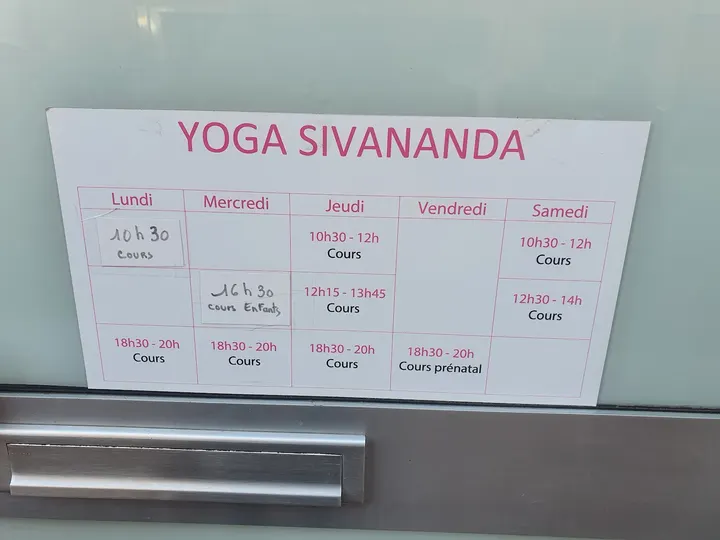 YOGA SIVANANDA
Lundi Mercredi Jeudi Vendredi Samedi
10h30 10h30 - 12h 10h30 - 12h
cours Cours Cours
16h30 12h15 - 13h45 12h30 - 14h
cours Enfants Cours Cours
18h30 - 20h 18h30 - 20h 18h30 - 20h 18h30 - 20h
Cours Cours Cours Cours prénatal